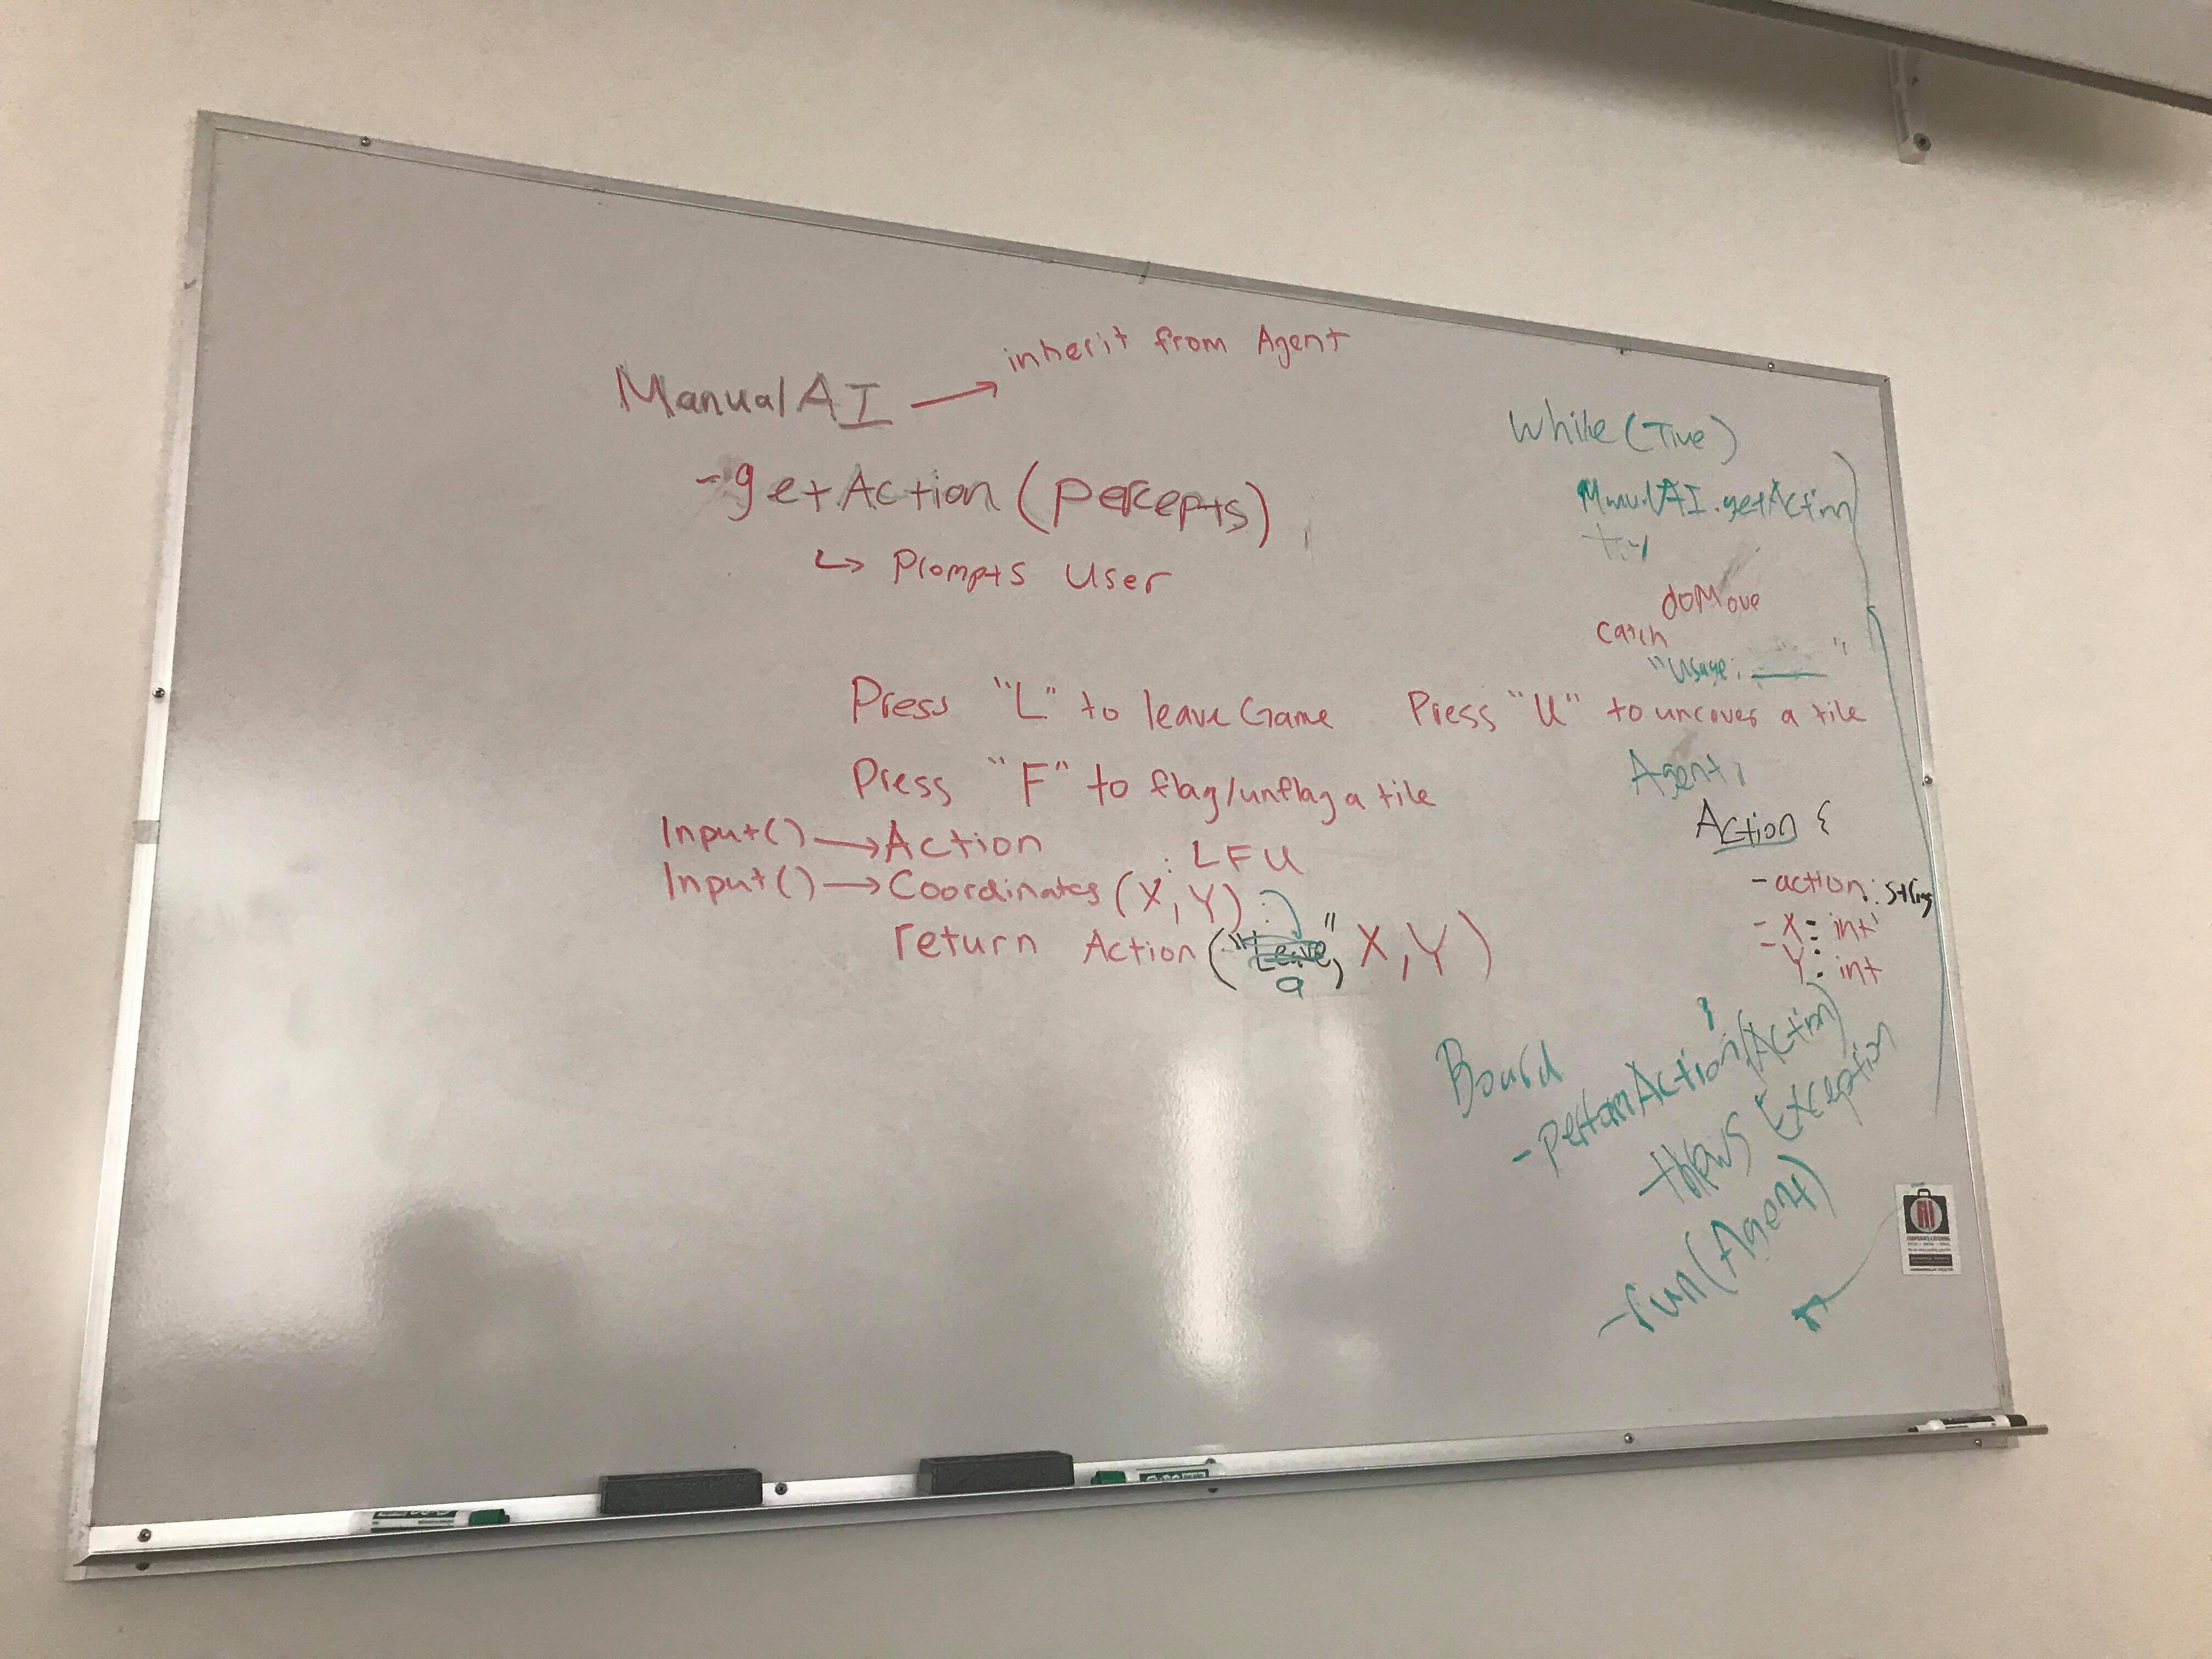 ManualAI → inherit from Agent
- getAction (percepts)
↳ Prompts User
Press "L" to leave Game
Press "U" to uncover a tile
Press "F" to flag/unflag a tile
Input() → Action : LFU
Input() → Coordinates (X, Y)
return Action ("Leave", X, Y)
a
While (True)
ManualAI.getAction
try
doMove
catch
"Usage: ___"
Agent
Action {
- action: string
- X: int
- Y: int
}
Board
- performAction (Action)
throws Exception
- run (Agent)
CORPORATE CATERING